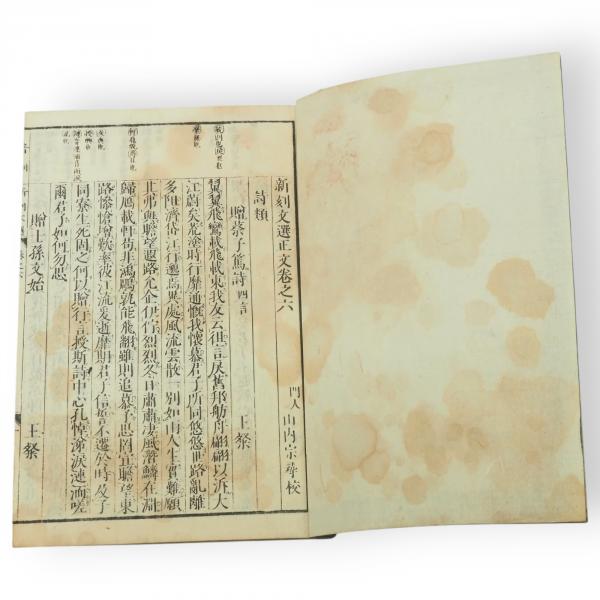 新刻文選正文卷之六
門人 山内宗 校
詩類
贈蔡子篤詩 四言 王粲
翼翼飛鸞載飛載東我友云徂言戾舊邦舫舟翩翩以泝大
江蔚矣荒塗時行靡通慨我懷慕君子所同悠悠世路亂離
多阻濟岱江行邈焉異處風流雲散一別如雨人生實難願
其弗與瞻望遐路允企伊佇烈烈冬日肅肅淒風潛鱗在淵
歸鴈載軒苟非鴻鵰孰能飛飜雖則追慕予思罔宣瞻望東
路慘愴增歎率彼江流爰逝靡期君子信誓不遷於時及子
同寮生死固之何以贈行言授斯詩中心孔悼涕淚漣洏嗟
爾君子如何勿思
贈士孫文始 王粲